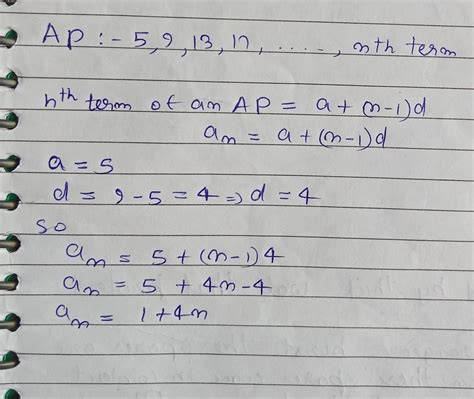 AP :- 5, 9, 13, 17, ....., nth term
nth term of an AP = a + (n-1)d
an = a + (n-1)d
a = 5
d = 9-5 = 4 ⇒ d = 4
so
an = 5 + (n-1)4
an = 5 + 4n-4
an = 1+4n